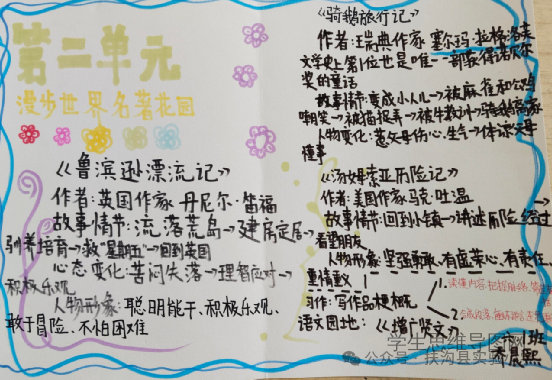 第二单元
漫步世界名著花园
《鲁滨逊漂流记》
作者:英国作家 丹尼尔·笛福
故事情节:流落荒岛→建房定居→
驯养培育→救"星期五"→回到英国
心态变化:苦闷失落→理智应对→
积极乐观
人物形象:聪明能干、积极乐观、
敢于冒险、不怕困难
《骑鹅旅行记》
作者:瑞典作家 塞尔玛·拉格洛芙
文学史上第1位也是唯一一部获得诺贝尔
奖的童话
故事情节:变成小人儿→被麻雀和公鸡
嘲笑→被猫捉弄→被牛数讨→骑鹅离家
人物变化:惹父母伤心、生气→体谅父母
懂事
《汤姆·索亚历险记》
作者:美国作家马克·吐温
故事情节:回到小镇→讲述历险经过→
看望朋友
人物形象:坚强勇敢、有虚荣心、有责任、
重情重义
习作:写作品梗概
1.读懂内容,把握脉络
语文园地:《增广贤文》
学生思维导图网
公众号·扶沟县实